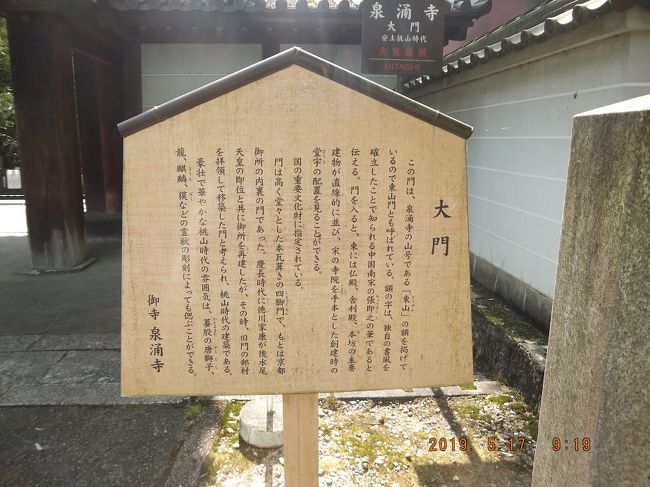 泉涌寺
大門
安土桃山時代
火気厳禁
HITACHI
大門
この門は、泉涌寺の山号である「東山」の額を掲げて
いるので東山門とも呼ばれている。額の字は、独自の書風を
確立したことで知られる中国南宋の張即之の筆であると
伝える。門を入ると、東には仏殿、舎利殿、本坊の主要
建物が直線的に並び、宋の寺院を手本とした創建時の
堂宇の配置を見ることができる。
国の重要文化財に指定されている。
門は高く堂々とした本瓦葺きの四脚門で、もとは京都
御所の内裏の門であった。慶長時代に徳川家康が後水尾
天皇の即位と共に御所を再建したが、その時、旧門の部材
を拝領して移築した門と考えられ、桃山時代の建築である。
豪壮で華やかな桃山時代の雰囲気は、蟇股の唐獅子、
龍、麒麟、獏などの霊獣の彫刻によっても偲ぶことができる。
御寺 泉涌寺
2019. 5.17 9:19